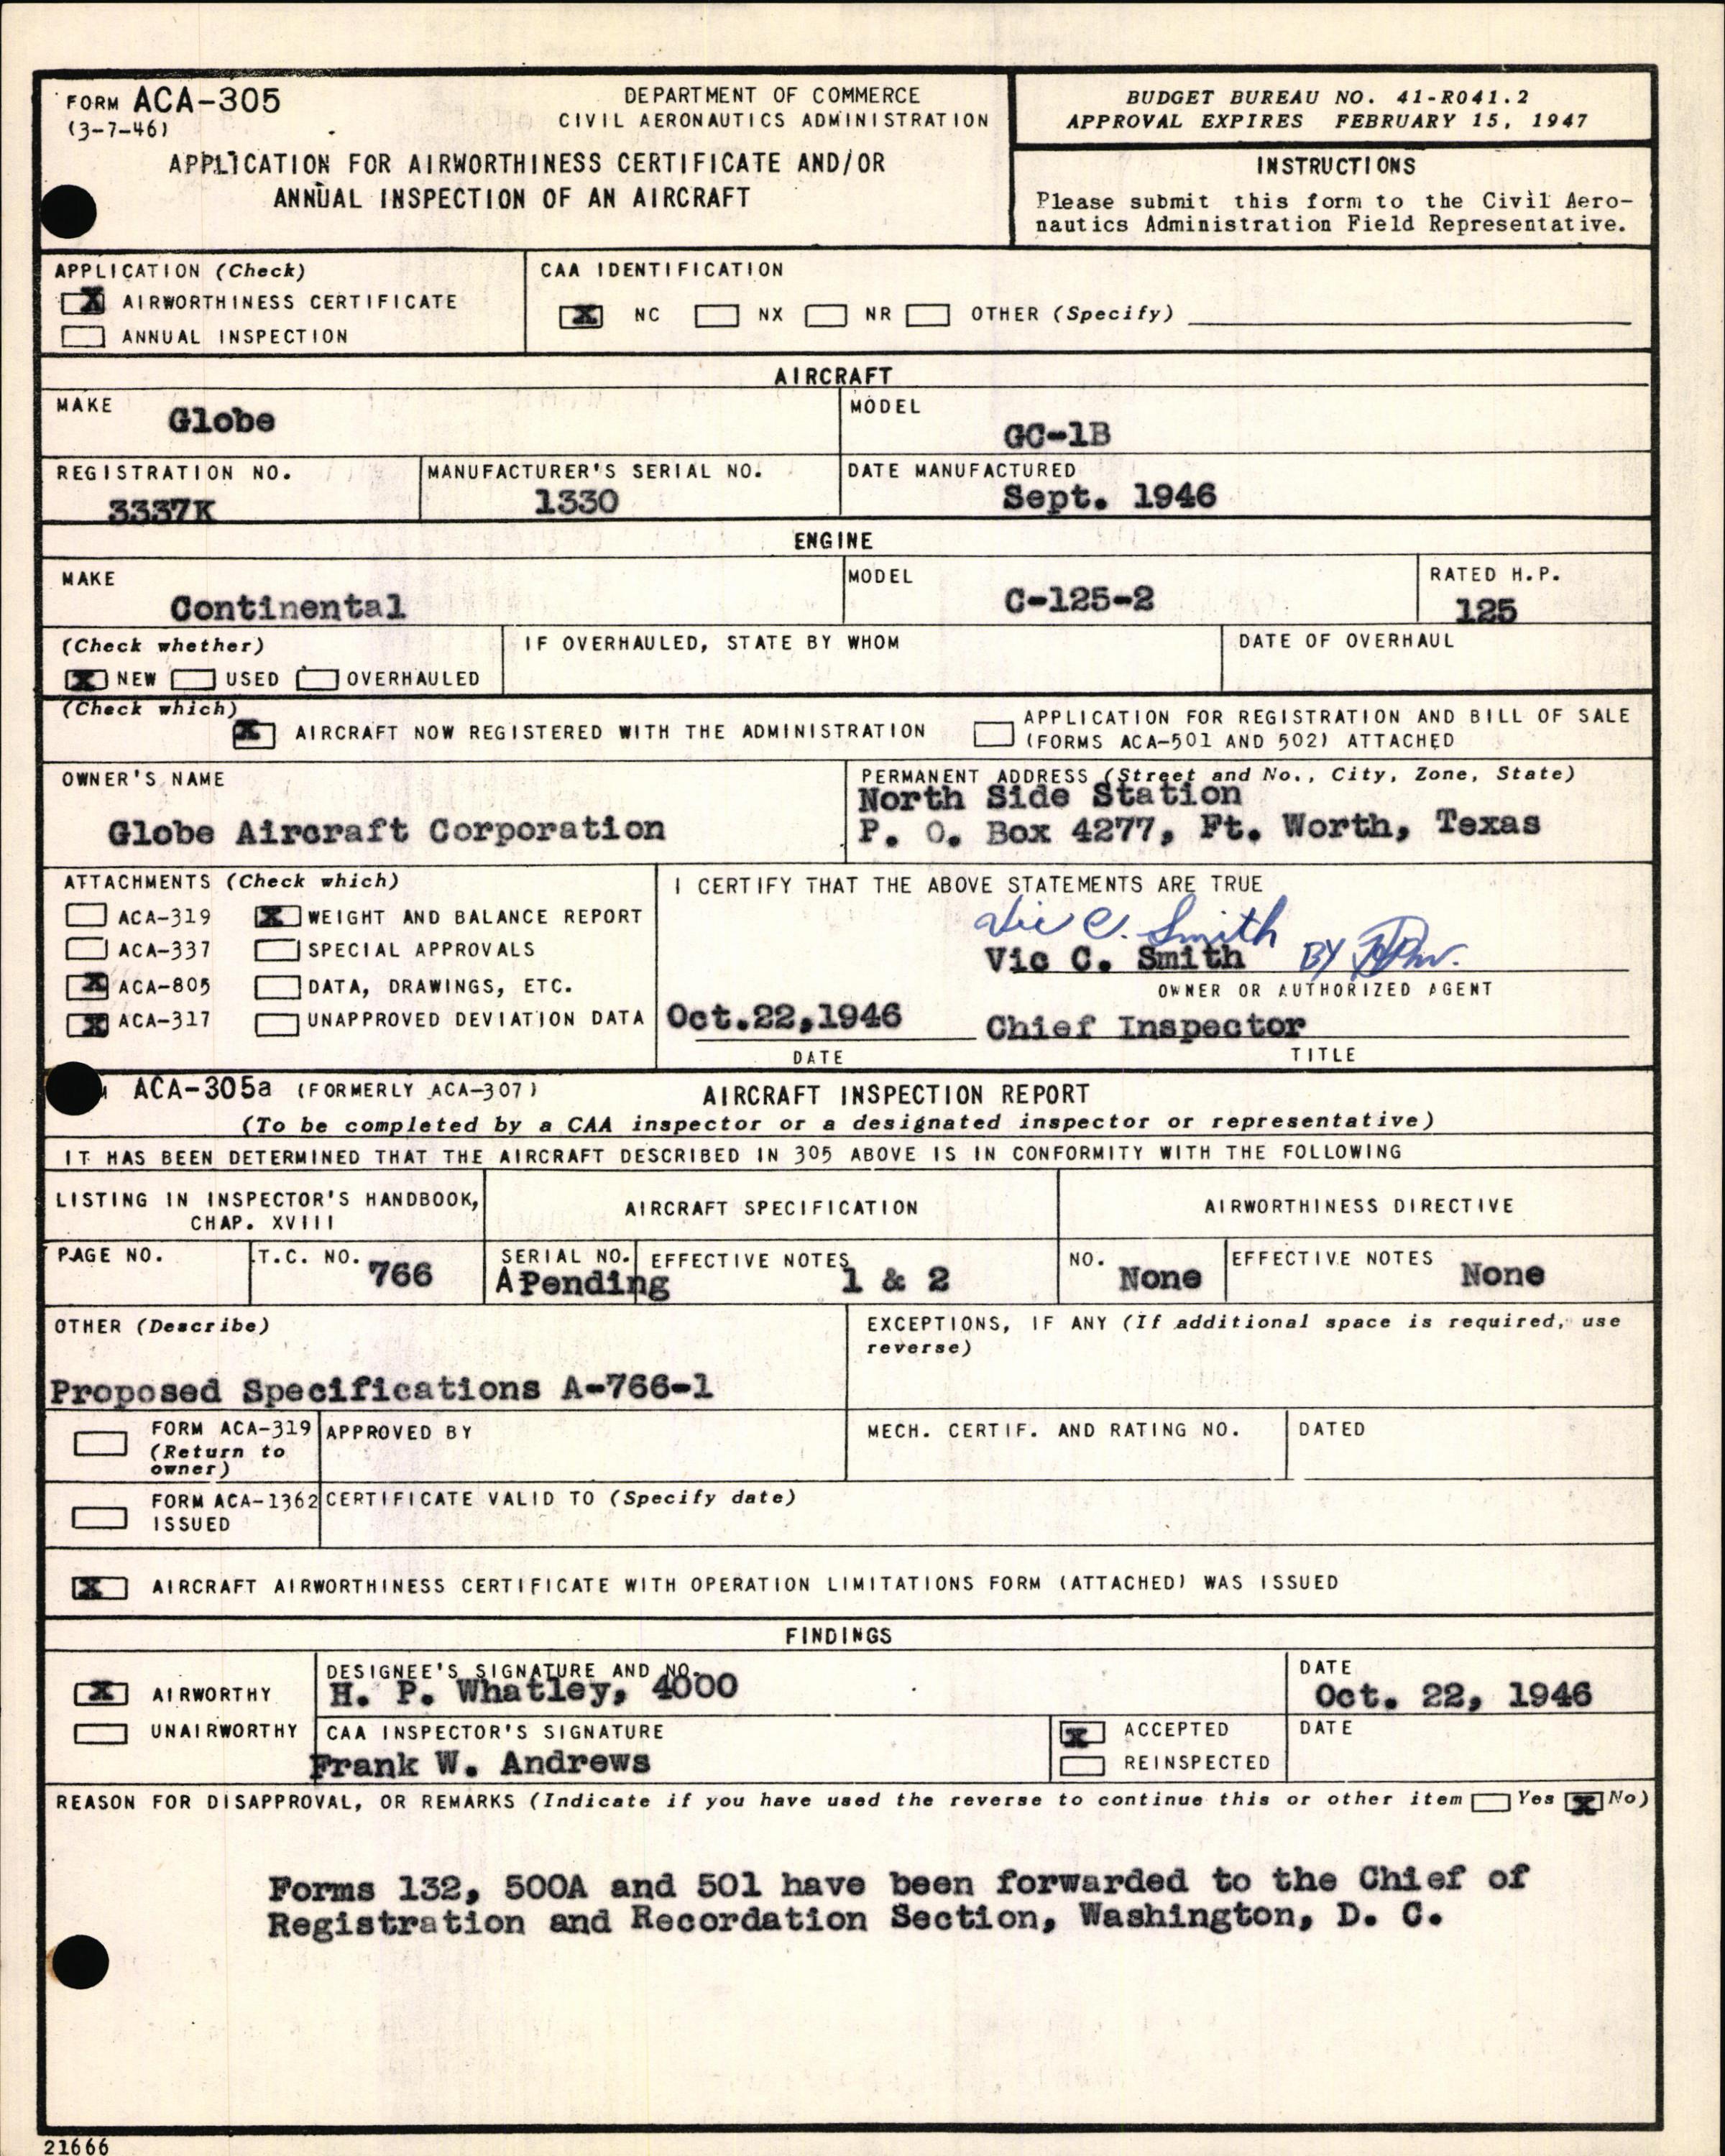 FORM ACA-305
(3-7-46)
DEPARTMENT OF COMMERCE
CIVIL AERONAUTICS ADMINISTRATION
APPLICATION FOR AIRWORTHINESS CERTIFICATE AND/OR
ANNUAL INSPECTION OF AN AIRCRAFT
BUDGET BUREAU NO. 41-R041.2
APPROVAL EXPIRES FEBRUARY 15, 1947
INSTRUCTIONS
Please submit this form to the Civil Aero-
nautics Administration Field Representative.
APPLICATION (Check)
X AIRWORTHINESS CERTIFICATE
ANNUAL INSPECTION
CAA IDENTIFICATION
X NC NX NR OTHER (Specify)
AIRCRAFT
MAKE
Globe
MODEL
GC-1B
REGISTRATION NO.
3337K
MANUFACTURER'S SERIAL NO.
1330
DATE MANUFACTURED
Sept. 1946
ENGINE
MAKE
Continental
MODEL
C-125-2
RATED H.P.
125
(Check whether)
X NEW USED OVERHAULED
IF OVERHAULED, STATE BY WHOM
DATE OF OVERHAUL
(Check which)
X AIRCRAFT NOW REGISTERED WITH THE ADMINISTRATION
APPLICATION FOR REGISTRATION AND BILL OF SALE
(FORMS ACA-501 AND 502) ATTACHED
OWNER'S NAME
Globe Aircraft Corporation
PERMANENT ADDRESS (Street and No., City, Zone, State)
North Side Station
P. O. Box 4277, Ft. Worth, Texas
ATTACHMENTS (Check which)
ACA-319 X WEIGHT AND BALANCE REPORT
ACA-337 SPECIAL APPROVALS
X ACA-805 DATA, DRAWINGS, ETC.
X ACA-317 UNAPPROVED DEVIATION DATA
I CERTIFY THAT THE ABOVE STATEMENTS ARE TRUE
Vic C. Smith
Vic C. Smith BY
OWNER OR AUTHORIZED AGENT
Oct.22,1946 Chief Inspector
DATE TITLE
ACA-305a (FORMERLY ACA-307)
AIRCRAFT INSPECTION REPORT
(To be completed by a CAA inspector or a designated inspector or representative)
IT HAS BEEN DETERMINED THAT THE AIRCRAFT DESCRIBED IN 305 ABOVE IS IN CONFORMITY WITH THE FOLLOWING
LISTING IN INSPECTOR'S HANDBOOK,
CHAP. XVIII
AIRCRAFT SPECIFICATION
AIRWORTHINESS DIRECTIVE
PAGE NO.
T.C. NO. 766
SERIAL NO.
A Pending
EFFECTIVE NOTES
1 & 2
NO. None
EFFECTIVE NOTES None
OTHER (Describe)
Proposed Specifications A-766-1
EXCEPTIONS, IF ANY (If additional space is required, use
reverse)
FORM ACA-319
(Return to
owner)
APPROVED BY
MECH. CERTIF. AND RATING NO.
DATED
FORM ACA-1362
ISSUED
CERTIFICATE VALID TO (Specify date)
X AIRCRAFT AIRWORTHINESS CERTIFICATE WITH OPERATION LIMITATIONS FORM (ATTACHED) WAS ISSUED
FINDINGS
X AIRWORTHY
UNAIRWORTHY
DESIGNEE'S SIGNATURE AND NO.
H. P. Whatley, 4000
DATE
Oct. 22, 1946
CAA INSPECTOR'S SIGNATURE
Frank W. Andrews
X ACCEPTED
REINSPECTED
DATE
REASON FOR DISAPPROVAL, OR REMARKS (Indicate if you have used the reverse to continue this or other item Yes X No)
Forms 132, 500A and 501 have been forwarded to the Chief of
Registration and Recordation Section, Washington, D. C.
21666